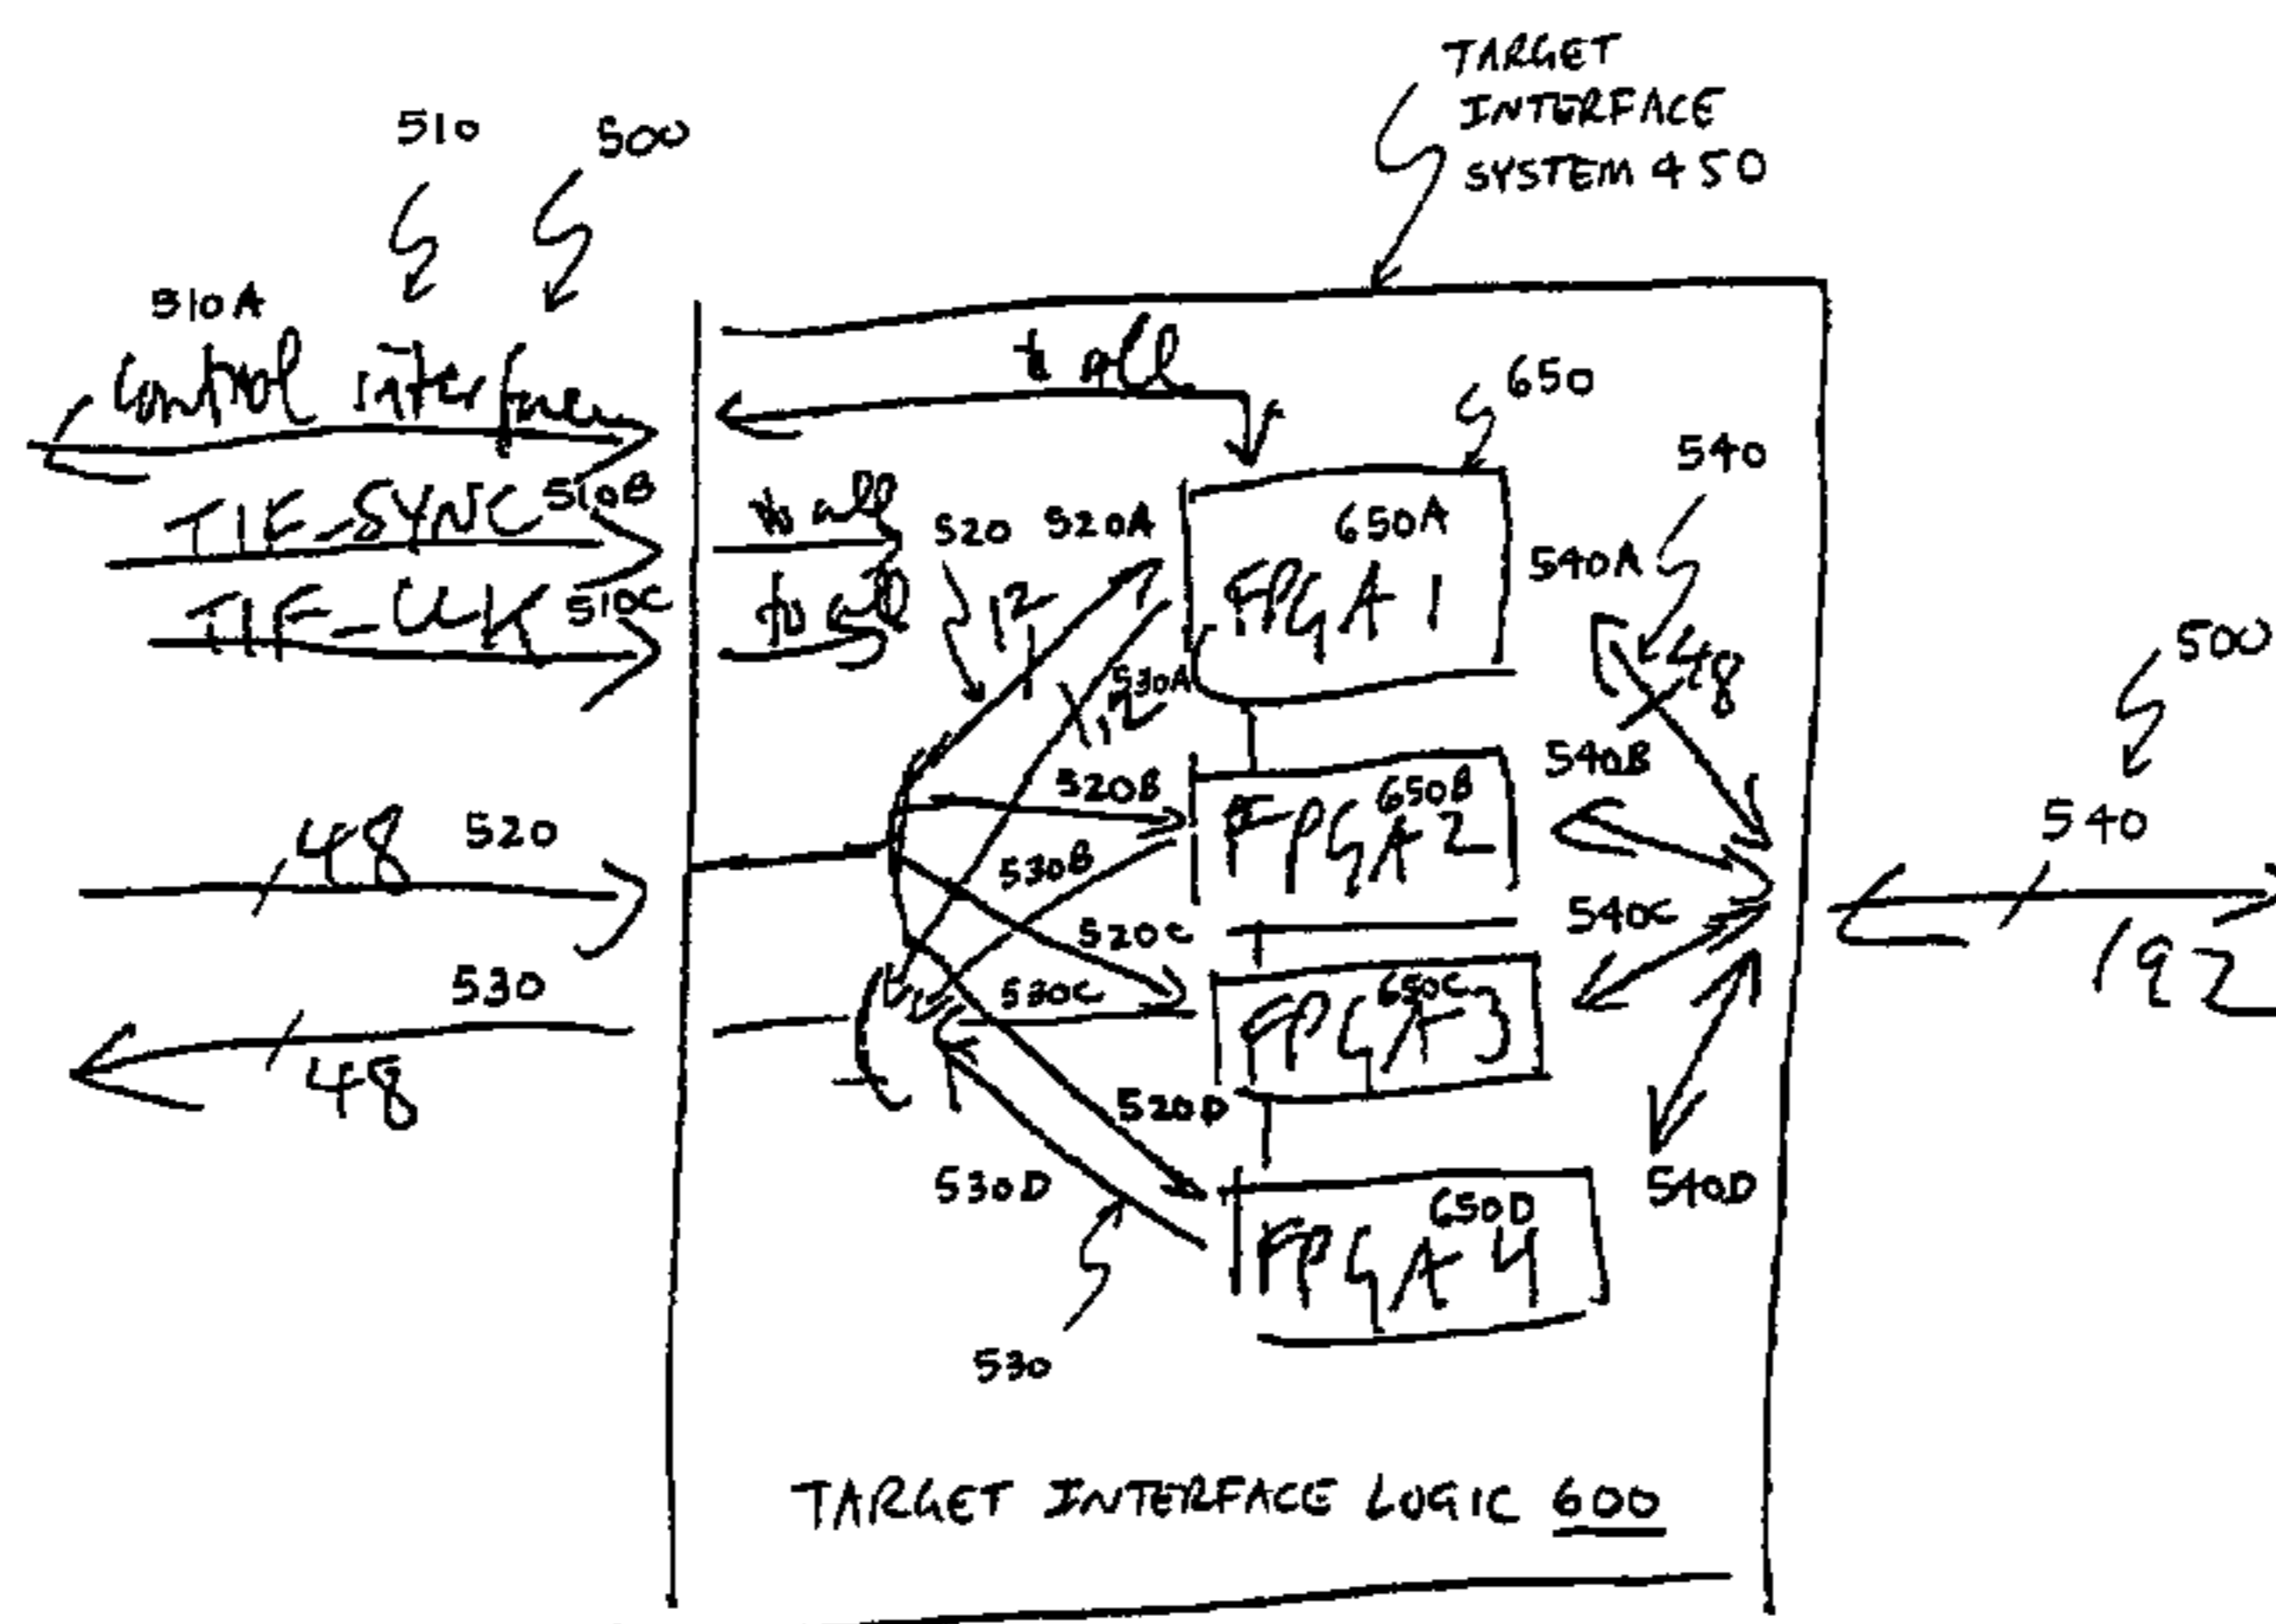 TARGET
INTERFACE
SYSTEM 450
510
500
510A
control interface
to all
650
540
TIE_SYNC 510B
to all
520
520A
650A
540A
FPGA 1
TIE_CLK 510C
to all
12
530A
12
48
500
540B
520B
650B
FPGA 2
48
520
540
530B
540C
520C
192
530
530C
650C
FPGA 3
48
520D
530D
650D
540D
FPGA 4
530
TARGET INTERFACE LOGIC 600